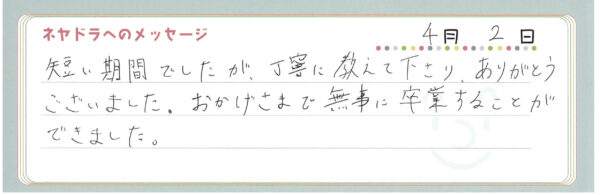 ネヤドラへのメッセージ
4月 2日
短い期間でしたが、丁寧に教えて下さり、ありがとう
ございました。おかげさまで無事に卒業することが
できました。